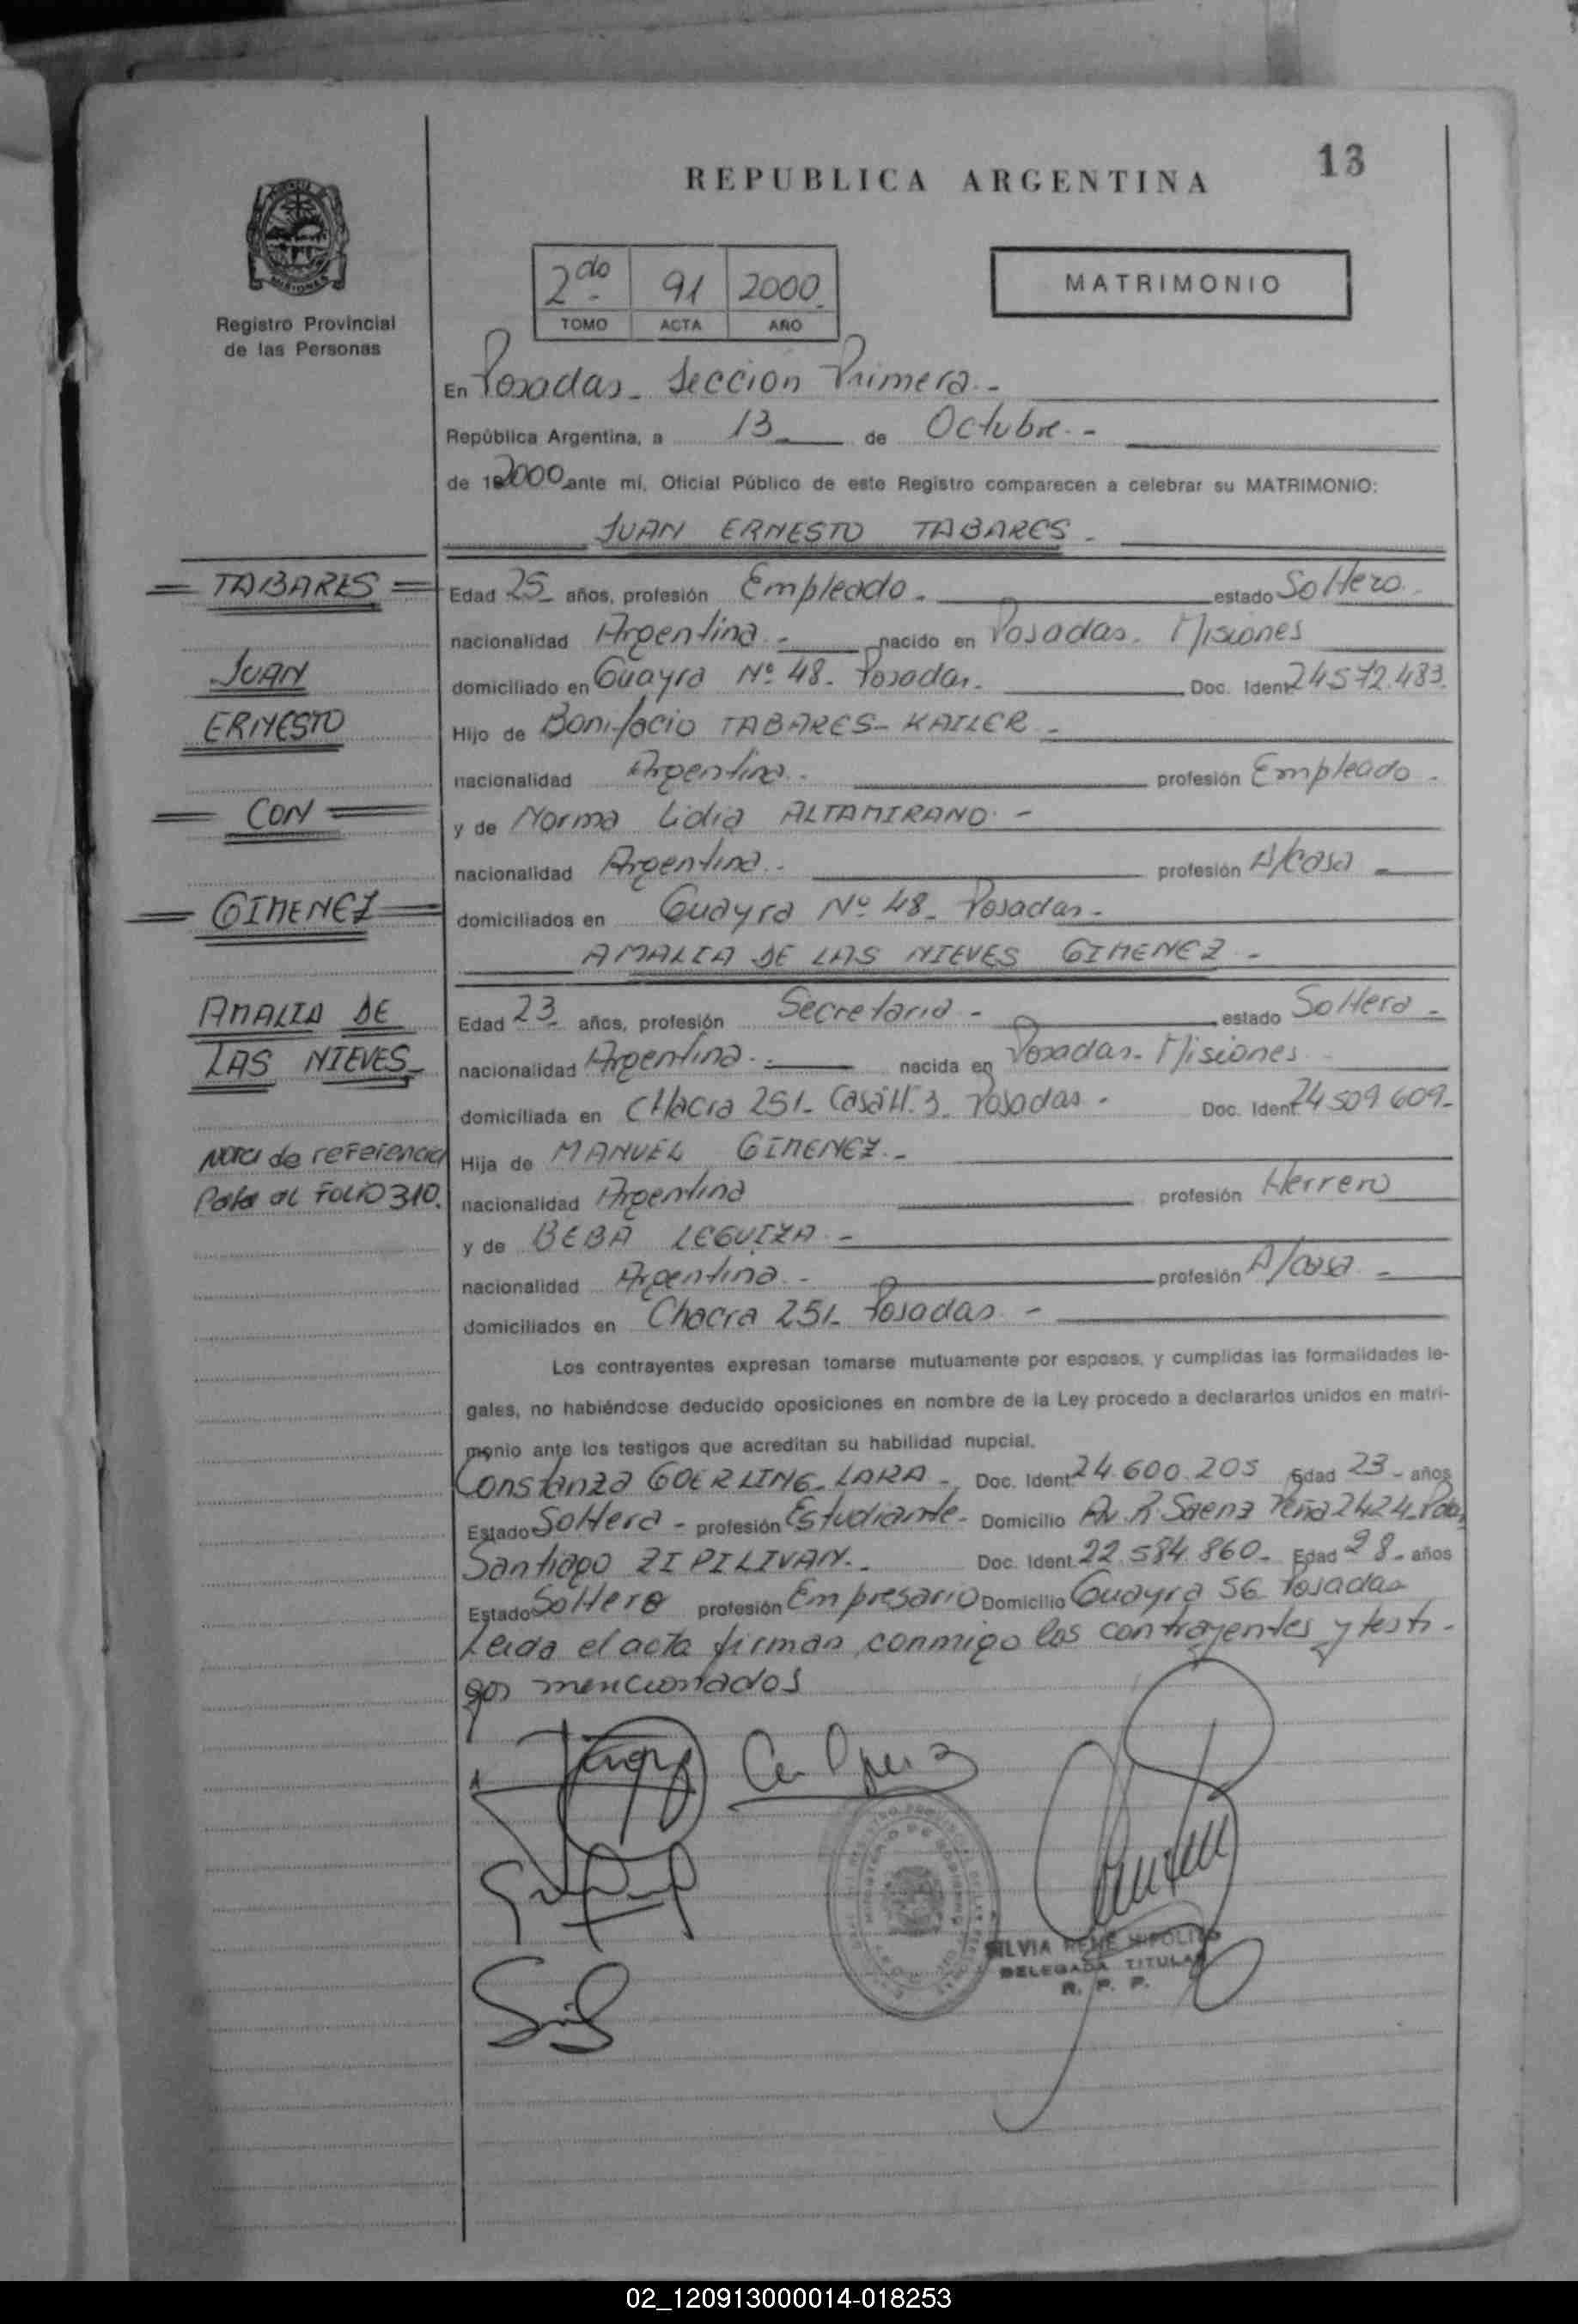 13
REPUBLICA ARGENTINA
2do 91 2000
TOMO ACTA AÑO
MATRIMONIO
Registro Provincial
de las Personas
En Posadas - Seccion Primera -
República Argentina, a 13 de Octubre -
de 2000 ante mí, Oficial Público de este Registro comparecen a celebrar su MATRIMONIO:
JUAN ERNESTO TABARES -
TABARES
Edad 25 años, profesión Empleado - estado Soltero
nacionalidad Argentina - nacido en Posadas. Misiones
JUAN
domiciliado en Guayra Nº 48 - Posadas - Doc. Ident 24572.483
ERNESTO
Hijo de Bonifacio TABARES - KAILER -
nacionalidad Argentina - profesión Empleado -
CON
y de Norma Lidia ALTAMIRANO -
nacionalidad Argentina - profesión A/casa -
GIMENEZ
domiciliados en Guayra Nº 48 - Posadas -
AMALIA DE LAS NIEVES GIMENEZ -
AMALIA DE
Edad 23 años, profesión Secretaria - estado Soltera -
LAS NIEVES
nacionalidad Argentina - nacida en Posadas - Misiones
domiciliada en CHacra 251 - Casa 3 - Posadas - Doc. Ident. 24 509 609 -
Nota de referencia
Hija de MANUEL GIMENEZ -
al FOLIO 310.
nacionalidad Argentina profesión Herrero
y de BEBA LEGUIZA -
nacionalidad Argentina - profesión A/casa -
domiciliados en Chacra 251 - Posadas -
Los contrayentes expresan tomarse mutuamente por esposos, y cumplidas las formalidades le-
gales, no habiéndose deducido oposiciones en nombre de la Ley procedo a declararlos unidos en matri-
monio ante los testigos que acreditan su habilidad nupcial.
Constanza GOERLING - LARA - Doc. Ident. 24.600.205 Edad 23 - años
Estado Soltera - profesión Estudiante - Domicilio Av. R. Saenz Peña 2424 - Pdas
Santiago ZIPILIVAN - Doc. Ident. 22.584.860 - Edad 28 - años
Estado Soltero profesión Empresario Domicilio Guayra 56 Posadas
Leida el acta firman conmigo los contrayentes y testi-
gos mencionados
SILVIA RENE HIPOLITO
DELEGADA TITULAR
R. P. P.
02_120913000014-018253